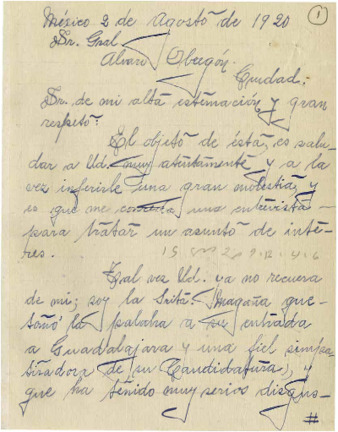 México 2 de Agosto de 1920
1
Sr. Gral.
Alvaro Obregón.
Ciudad:
Sr. de mi alta estimación y gran
respeto:
El objeto de ésta, es salu-
dar a Ud. muy atentamente y a la
vez inferirle una gran molestia, y
es que me conceda una entrevista
para tratar un asunto de inte-
res.
Tal vez Ud. ya no recuera
de mi; soy la Srita. Magaña que
tomó la palabra a su entrada
a Guadalajara y una fiel simpa
tizadora de su Candidatura, y
que ha tenido muy serios disgus-
#